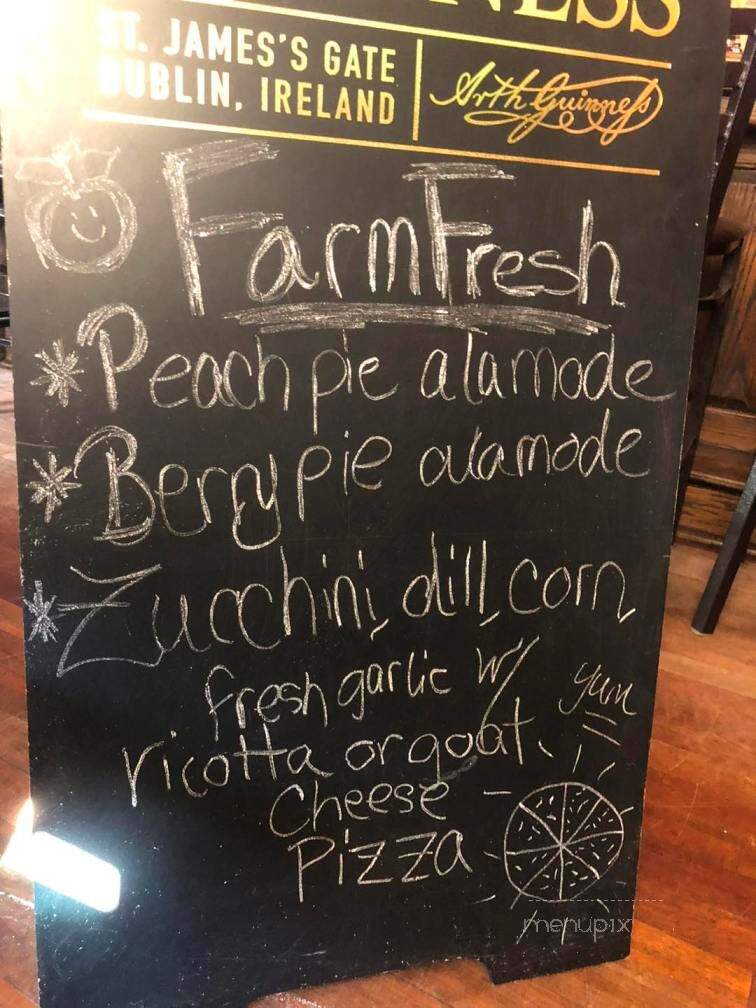 ST. JAMES'S GATE
DUBLIN, IRELAND
Arth Guinness
Farm Fresh
* Peach pie alamode
* Berry pie alamode
* Zucchini, dill, corn,
fresh garlic w/ yum
ricotta or goat
cheese
pizza
menupix